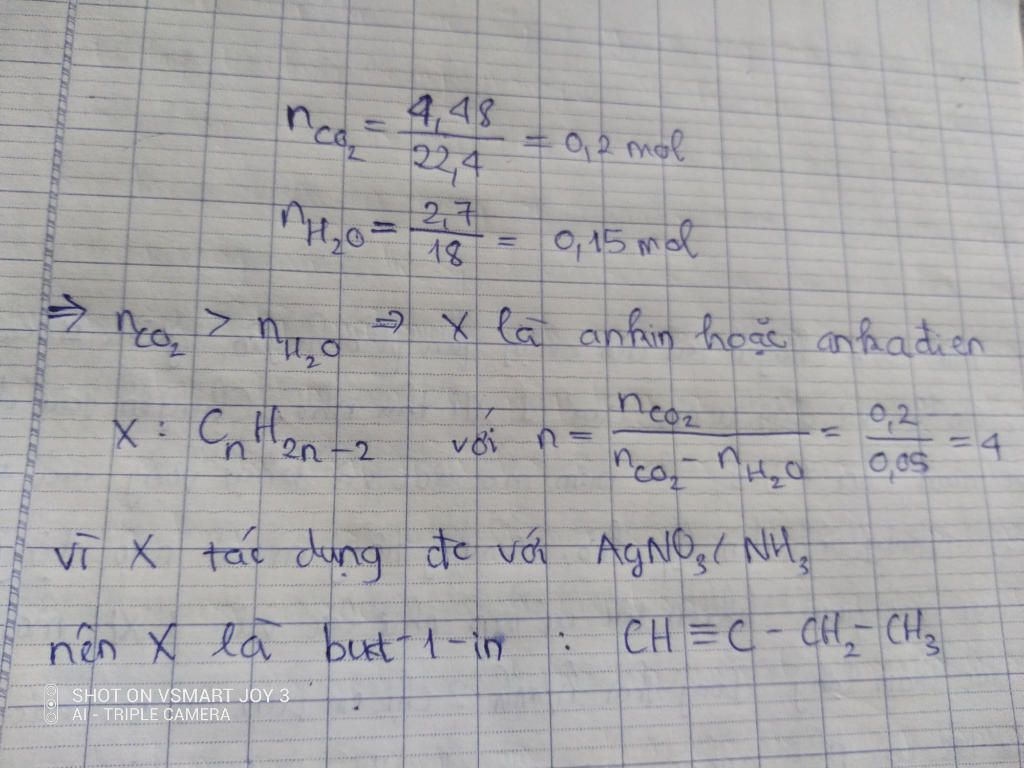 n_CO₂ = 4,48 / 22,4 = 0,2 mol
n_H₂O = 2,7 / 18 = 0,15 mol
⇒ n_CO₂ > n_H₂O ⇒ X là ankin hoặc ankađien
X : C_nH_2n-2 với n = n_CO₂ / (n_CO₂ - n_H₂O) = 0,2 / 0,05 = 4
vì X tác dụng đc với AgNO₃/NH₃
nên X là but-1-in : CH ≡ C - CH₂ - CH₃
SHOT ON VSMART JOY 3
AI - TRIPLE CAMERA